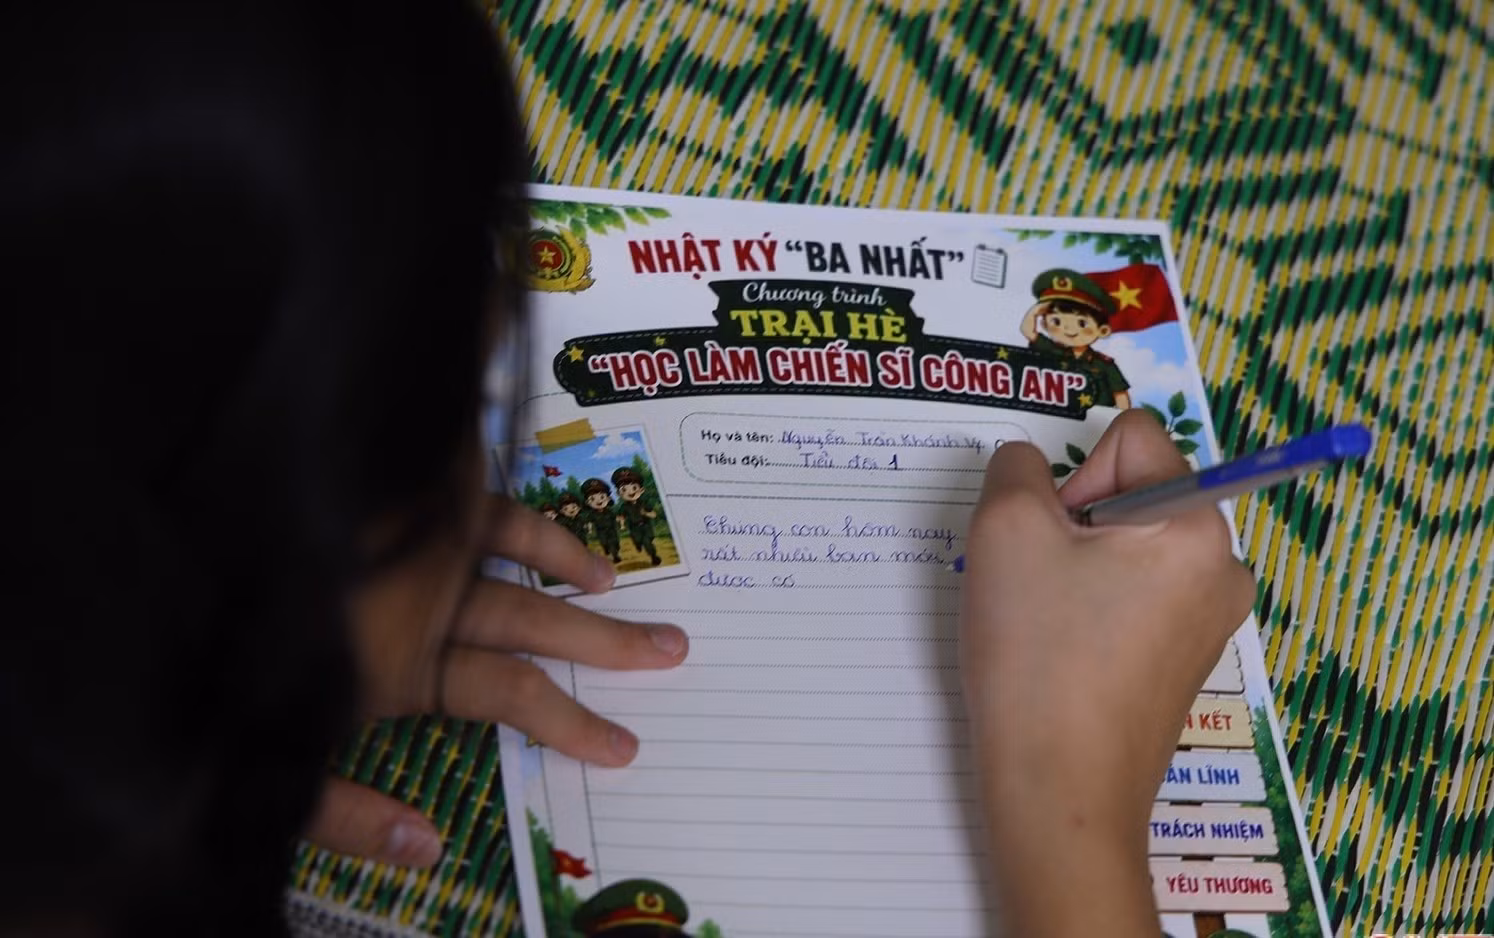 NHẬT KÝ “BA NHẤT”
Chương trình
TRẠI HÈ
“HỌC LÀM CHIẾN SĨ CÔNG AN”
Họ và tên: Nguyễn Trần Khánh Vy
Tiểu đội: Tiểu đội 1
Chúng con hôm nay
rất nhiều bạn mới
được có
KẾT
LĨNH
TRÁCH NHIỆM
YÊU THƯƠNG